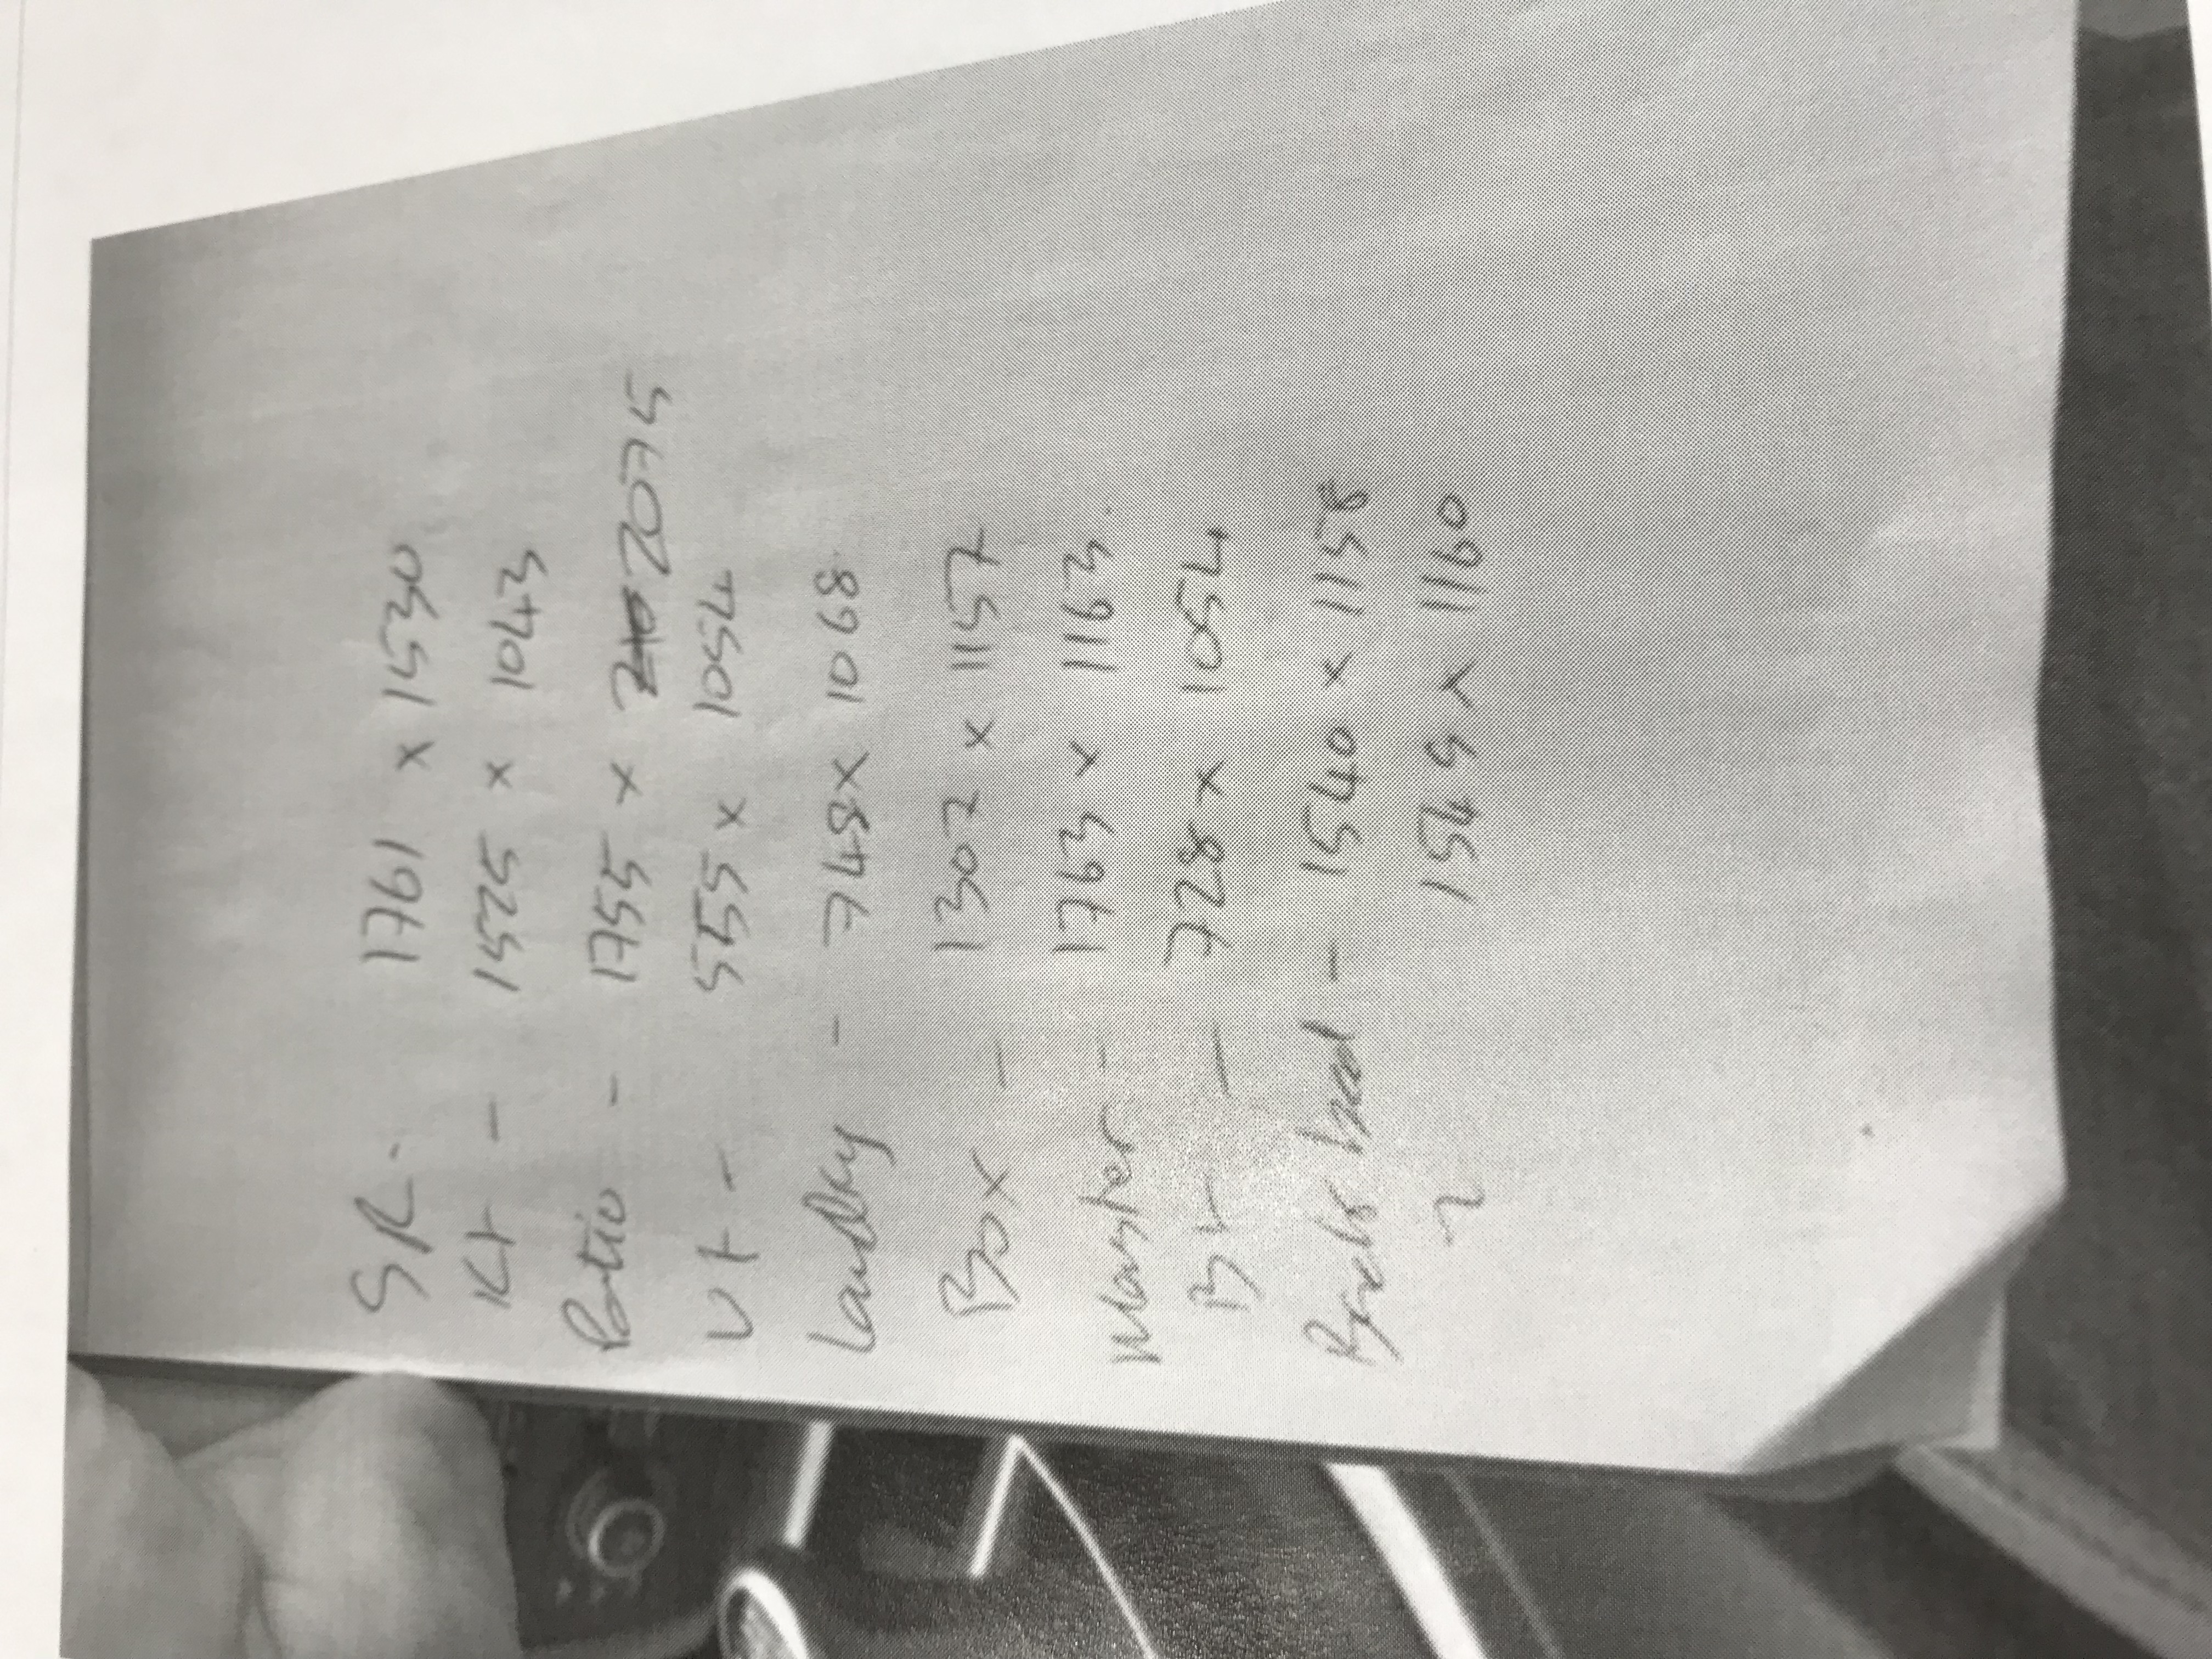 SR - 1761 x 1530
Kt - 1525 x 1043
Patio - 1755 x 2075
Ut - 555 x 1054
Laundry - 748 x 1068
Box - 1307 x 1157
Master - 1763 x 1163
Br - 728 x 1054
bed - 1540 x 1158
2 1545 x 1160